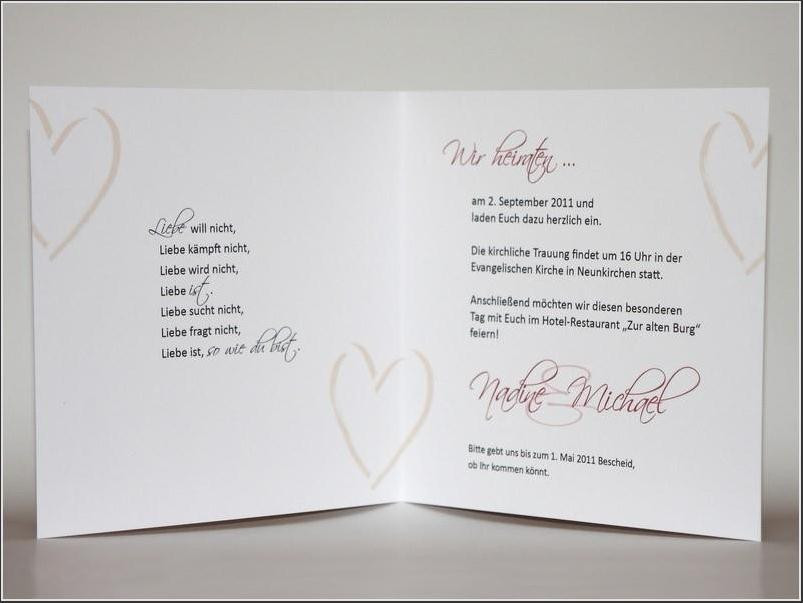 Liebe will nicht,
Liebe kämpft nicht,
Liebe wird nicht,
Liebe ist.
Liebe sucht nicht,
Liebe fragt nicht,
Liebe ist, so wie du bist.
Wir heiraten ...
am 2. September 2011 und
laden Euch dazu herzlich ein.
Die kirchliche Trauung findet um 16 Uhr in der
Evangelischen Kirche in Neunkirchen statt.
Anschließend möchten wir diesen besonderen
Tag mit Euch im Hotel-Restaurant „Zur alten Burg“
feiern!
Nadine & Michael
Bitte gebt uns bis zum 1. Mai 2011 Bescheid,
ob Ihr kommen könnt.